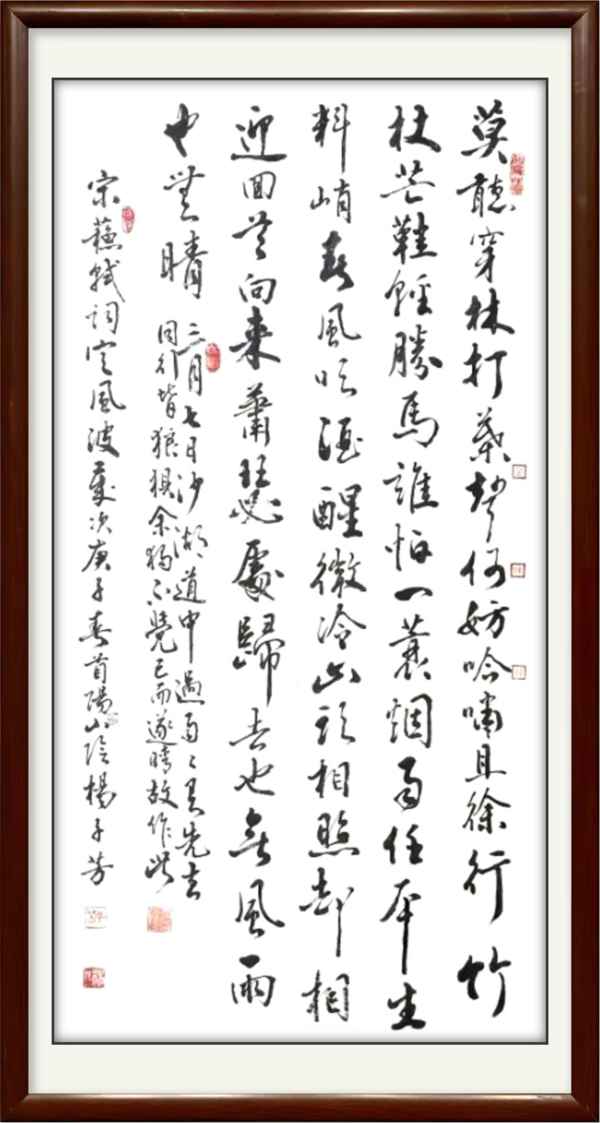 莫聽穿林打葉聲何妨吟嘯且徐行竹
杖芒鞋輕勝馬誰怕一蓑烟雨任平生
料峭春風吹酒醒微冷山頭相照却相
迎回首向来蕭瑟處歸去也無風雨
也無晴
三月七日沙湖道中遇雨〻具先去
同行皆狼狽余獨不覺已而遂晴故作此
宋蘇軾詞定風波歲次庚子春首陽山陰楊子芳